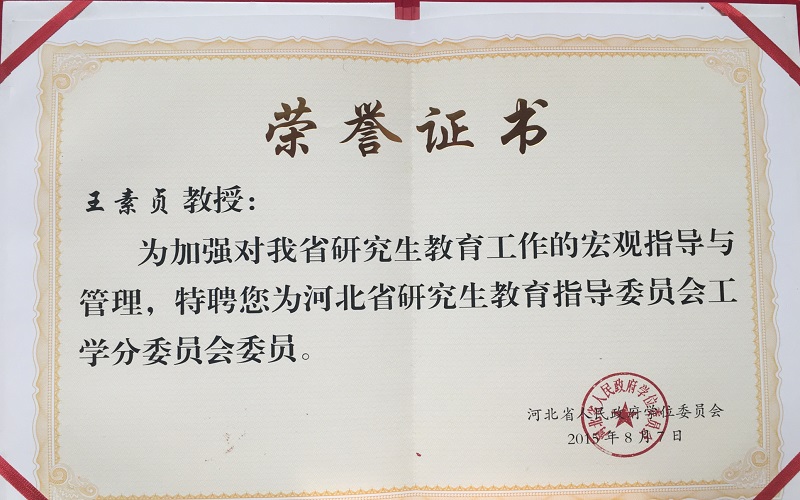 荣誉证书
王素贞 教授：
为加强对我省研究生教育工作的宏观指导与
管理，特聘您为河北省研究生教育指导委员会工
学分委员会委员。
河北省人民政府学位委员会
2015年8月7日
河北省人民政府学位委员会